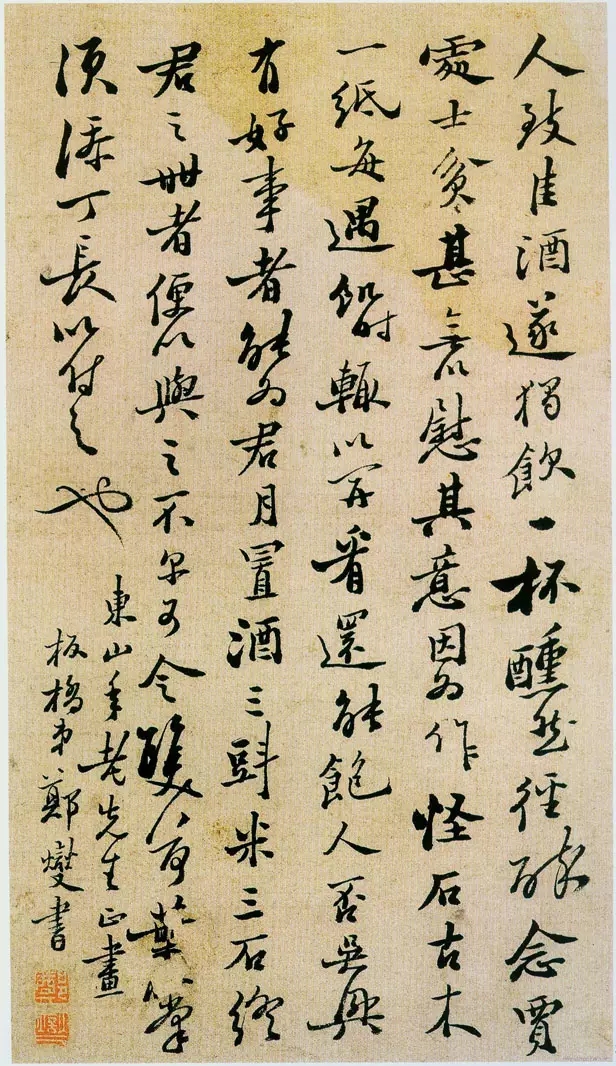 人致佳酒遂獨飲一杯醺然徑醉念賈
處士貧甚無以慰其意因为作怪石古木
一紙每遇飢時輒以開看還能飽人否吳興
有好事者能为君月置酒三㪷米三石終
君之世者便以與之不爾可令雙荷葉
須添丁長以付之也
東山年老先生正畫
板橋弟鄭燮書